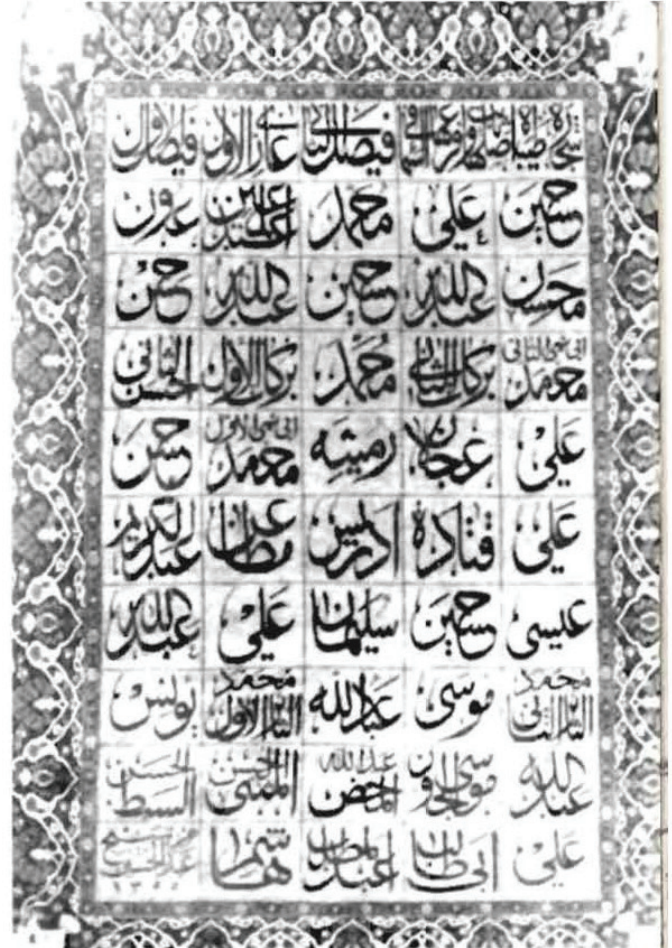 شجرة فيصل الثاني غازي الاول فيصل الاول
حسين علي محمد عبد المعين عون
محسن عبدالله حسين عبدالله حسن
ابي نمي الثاني محمد بركات الثاني محمد بركات الاول الحسن الثاني
علي عجلان رميثه ابي نمي الاول محمد حسن
علي قتادة ادريس مطاعن عبدالكريم
عيسى حسين سليمان علي عبدالله
محمد الثائر الثاني موسى عبدالله محمد الثائر الاول يونس
عبدالله موسى الجون عبدالله المحض الحسن المثنى الحسن السبط
علي ابي طالب عبد المطلب هاشم